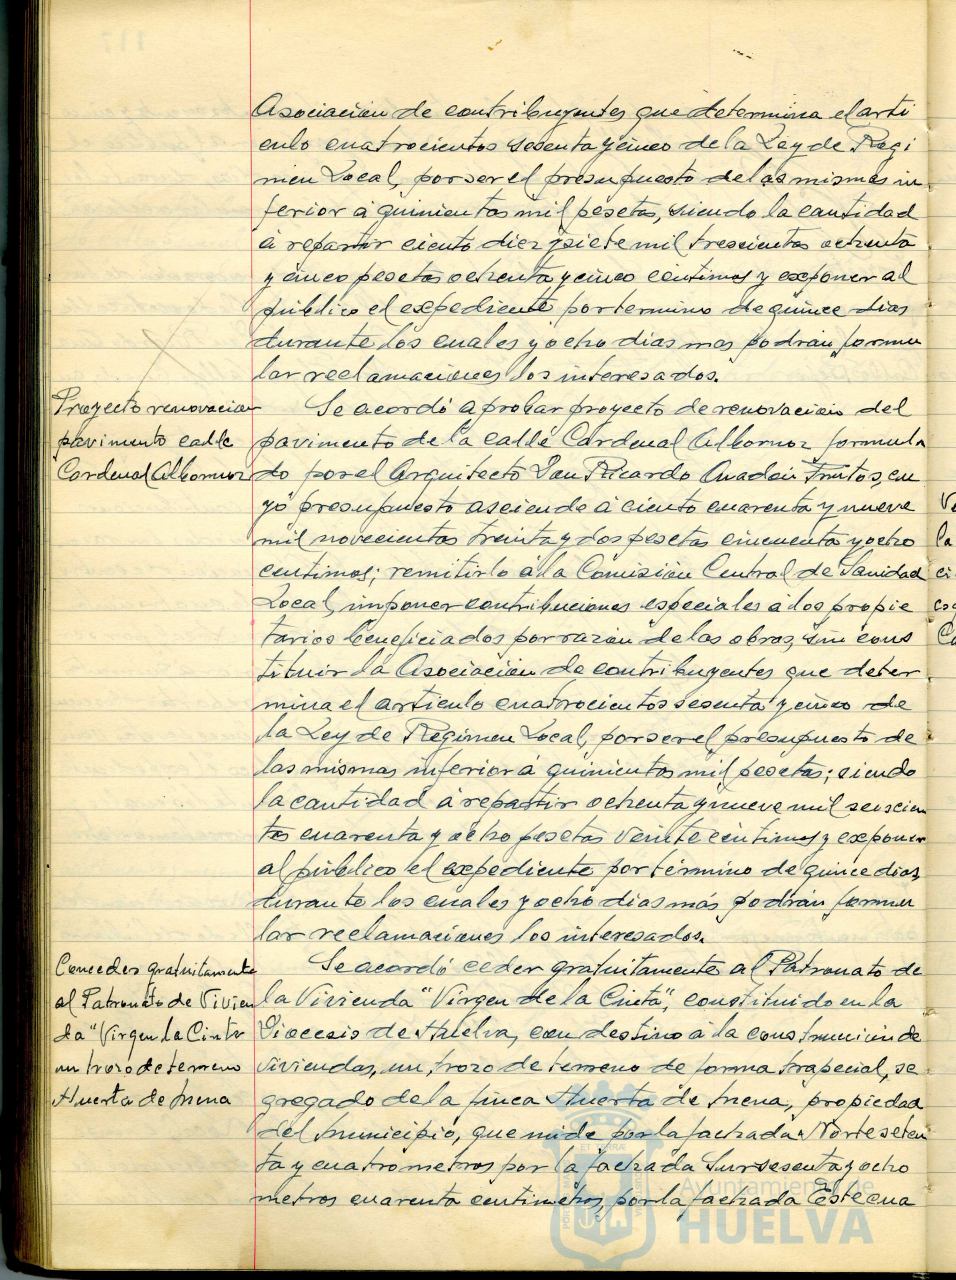 Asociación de contribuyentes que determina el arti
culo cuatrocientos sesenta y cinco de la Ley de Regi
men Local, por ser el presupuesto de las mismas in
ferior á quinientas mil pesetas, siendo la cantidad
á repartir ciento diez y siete mil trescientas ochenta
y cinco pesetas ochenta y cinco centimos y exponer al
público el expediente por termino de quince dias
durante los cuales y ocho dias mas podrán formu
lar reclamaciones los interesados.
Proyecto renovacion
pavimento calle
Cardenal Albornoz
Se acordó aprobar proyecto de renovación del
pavimento de la calle Cardenal Albornoz formula
do por el Arquitecto Don Ricardo Anadón Frutos, cu
yo presupuesto asciende á ciento cuarenta y nueve
mil novecientas treinta y dos pesetas cincuenta y ocho
centimos; remitirlo á la Comisión Central de Sanidad
Local, imponer contribuciones especiales á los propie
tarios beneficiados por razón de las obras, sin cons
tituir la Asociación de contribuyentes que deter
mina el articulo cuatrocientos sesenta y cinco de
la Ley de Regimen Local, por ser el presupuesto de
las mismas inferior á quinientas mil pesetas; siendo
la cantidad á repartir ochenta y nueve mil seiscien
tas cuarenta y ocho pesetas veinte centimos y exponer
al público el expediente por término de quince dias,
durante los cuales y ocho dias más podrán formu
lar reclamaciones los interesados.
Conceder gratuitamente
al Patronato de Vivien
da "Virgen la Cinta
un trozo de terreno
Huerta de Mena
Se acordó ceder gratuitamente al Patronato de
la Vivienda "Virgen de la Cinta", constituido en la
Diocesis de Huelva, con destino á la construcción de
viviendas, un trozo de terreno de forma trapecial, se
gregado de la finca Huerta de Mena, propiedad
del Municipio, que mide por la fachada Norte seten
ta y cuatro metros por la fachada Sur sesenta y ocho
metros cuarenta centimetros, por la fachada Este cua
Ayuntamiento de
HUELVA